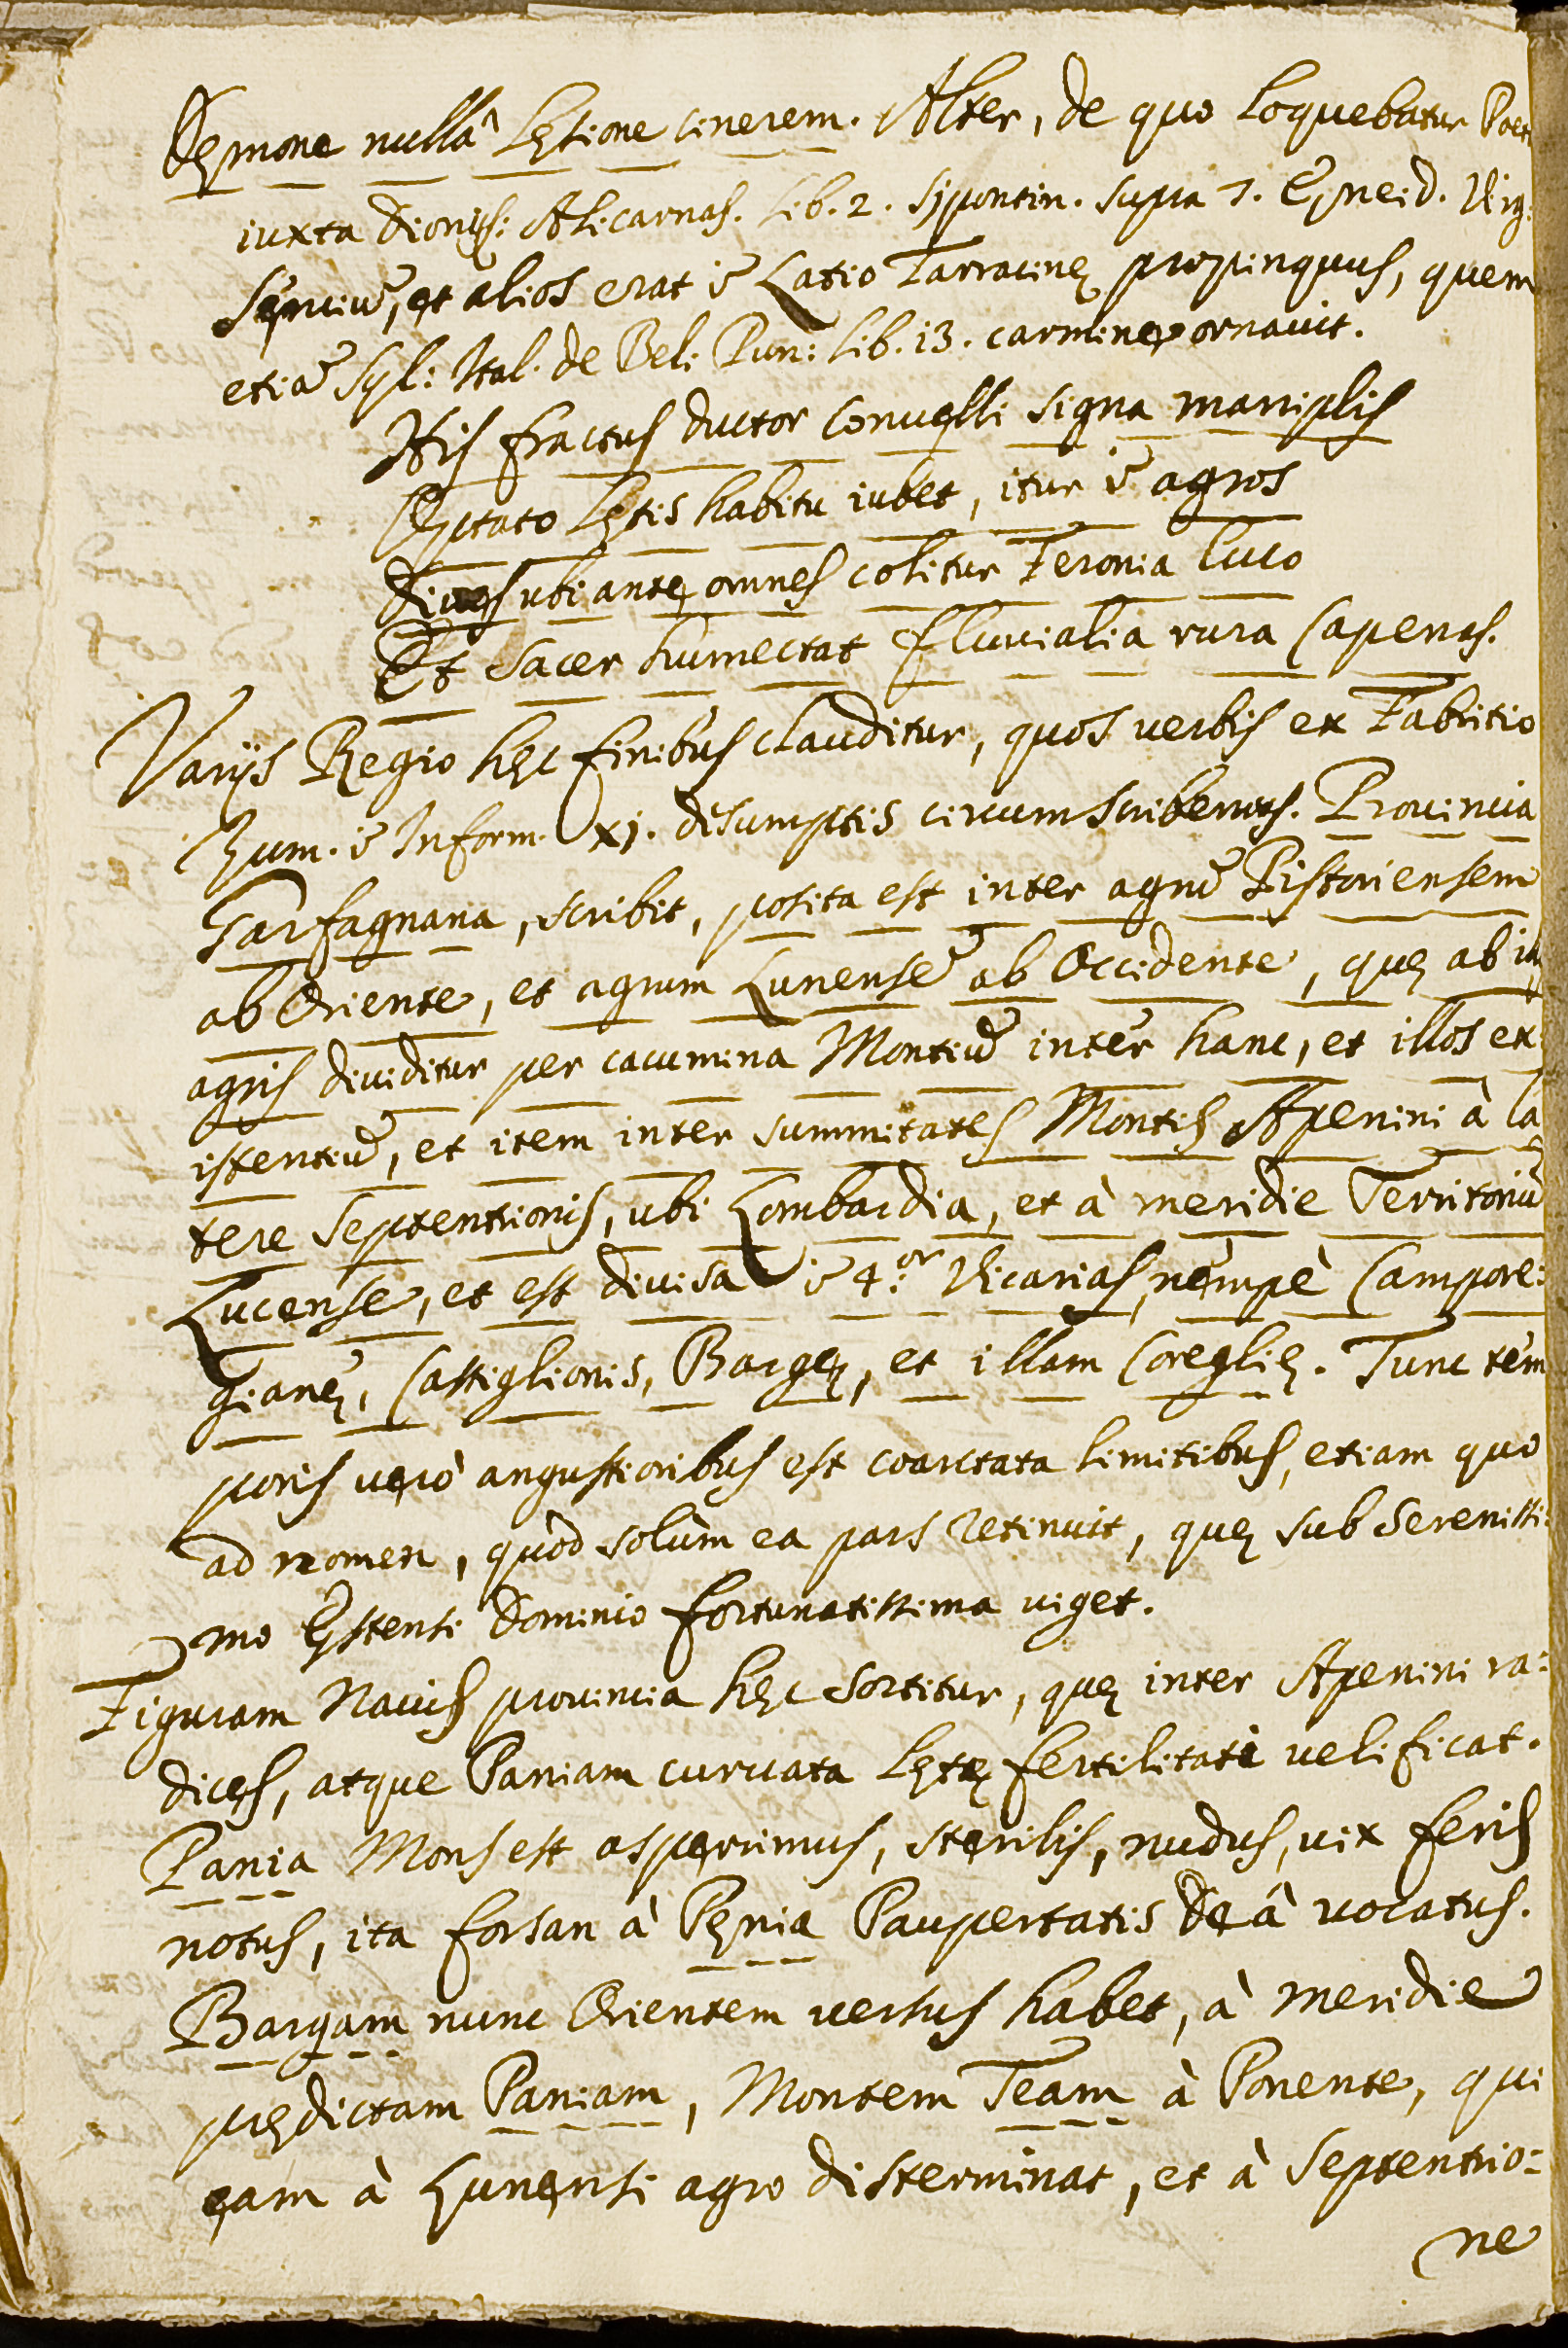 Dęmone nullâ lęsione cinerem. Alter, de quo loquebatur Poet
iuxta Dionys: Alicarnas. Lib. 2. Sypontin. supra 7. Ęneid. Virg:
Serviũ, et alios erat ĩ Latio Tarracinę propinquus, quem
etiã Syl: Ital. de Bel: Pun: lib. 13. carmine ornavit.
His fractus ductor convelli signa maniplis
Optato lętis habitu iubet, itur ĩ agros
Dives ubi ante omnes colitur Feronia luco
Et sacer humectat fluvialia rura Capenas.
Varijs Regio hęc finibus clauditur, quos verbis ex Fabritio
Zum. ĩ Inform. xj. desumptis circumscribemus. Provincia
Garfagnana, scribit, posita est inter agrũ Pistoriensem
ab Oriente, et agrum Lunensẽ ab Occidente, quę ab ip
agris dividitur per cacumina Montiũ inter hanc, et illos ex
istentiũ, et item inter summitates Montis Apenini à la
tere Septentrionis, ubi Lombardia, et à meridie Territoriũ
Lucense, et est divisa ĩ 4.or Vicarias, nempè Campore:
gianę, Castiglionis, Bargę, et illam Coreglię. Tunc tem
poris verò angustioribus est coarctata limitibus, etiam quo
ad nomen, quòd solùm ea pars retinuit, quę sub Serenissi:
mo Estensi Dominio fortunatissima viget.
Figuram Navis provincia hęc sortitur, quę inter Apenini ra:
dices, atque Paniam curvata lętę fertilitati velificat.
Pania Mons est asperrimus, sterilis, nudus, vix feris
notus, ita forsan à Pęnia Paupertatis Deâ vocatus.
Bargam nunc Orientem versus habet, à meridie
prędictam Paniam, Montem Team à Ponente, qui
eam à Lunensi agro disterminat, et à Septentrio:
ne